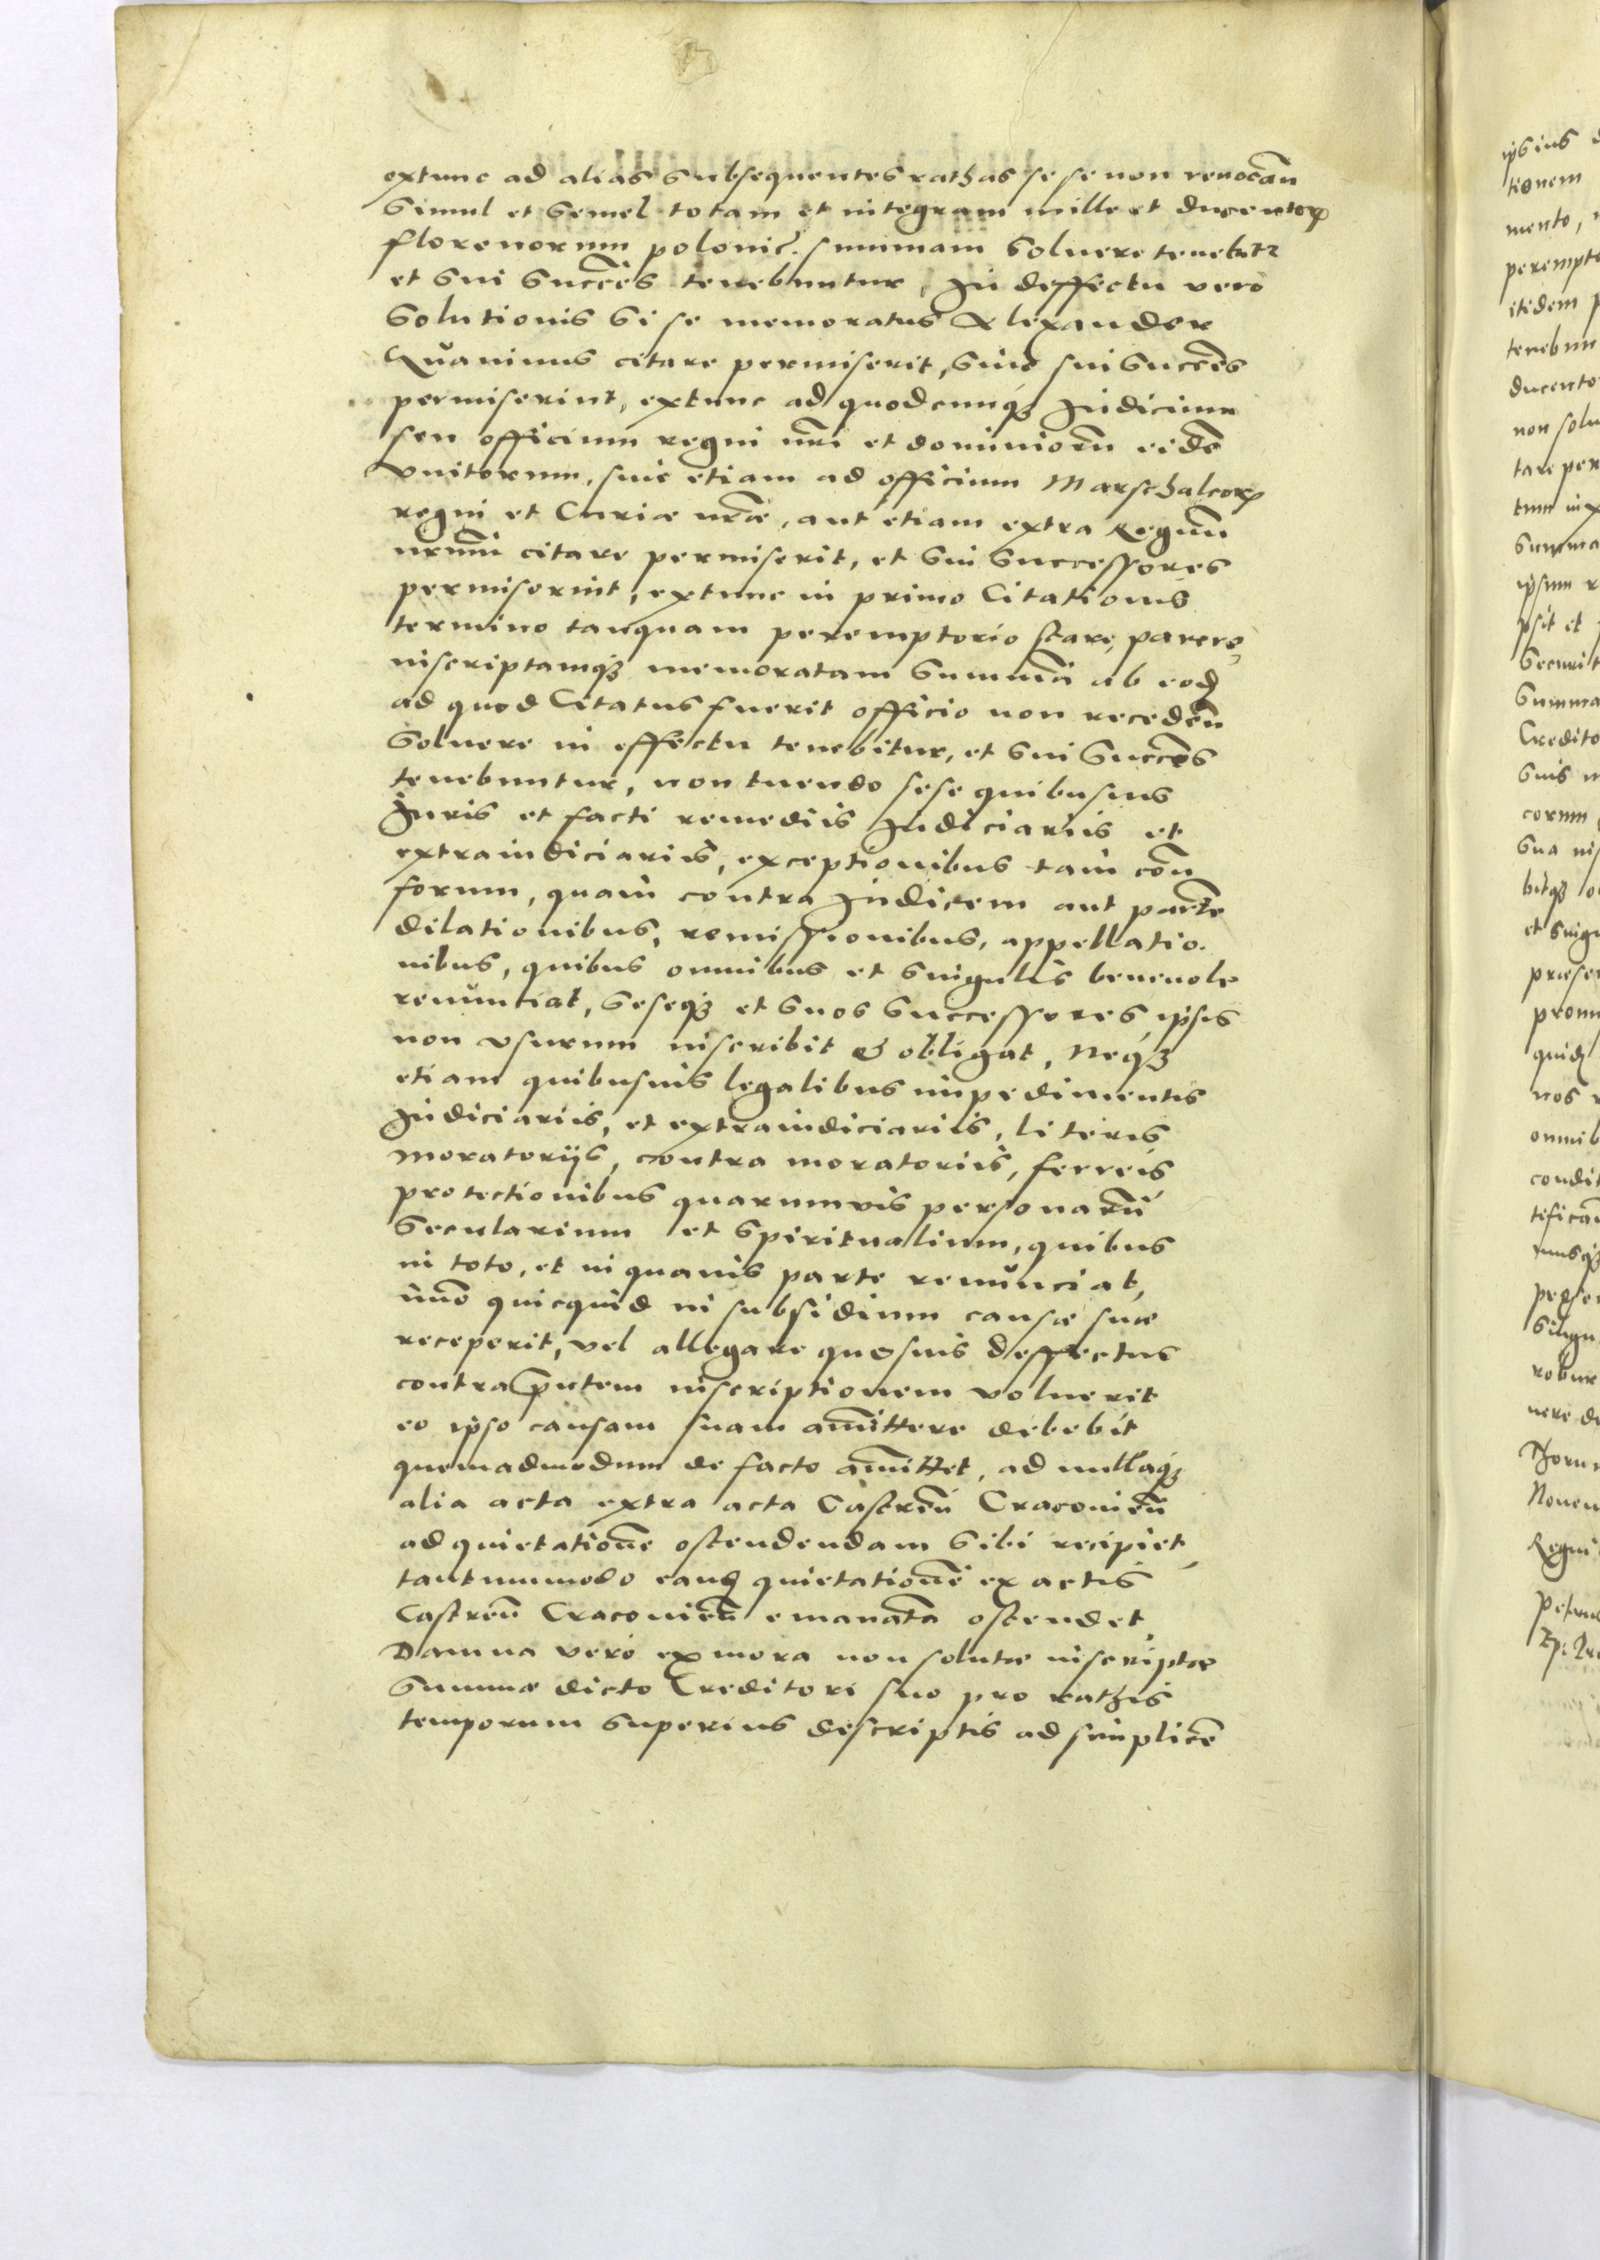 extunc ad alias subsequentes rathas se se non revocan̄
simul et semel totam et integram mille et ducentorꝝ
florenorum polonic. summam solvere tenebitr
et sui succēs tenebuntur, In deffectu vero
solutionis si se memoratus Alexander
citare permiserit, sive sui succēs
permiserint, extunc ad quodcunqꝫ Iudicium
seu officium regni nr̄i et dominiorū eidē
vnitorum, sive etiam ad officium Marschalcorꝝ
regni et Curiæ nr̄æ, aut etiam extra Regnū
nr̄um citare permiserit, et sui successores
permiserint, extunc in primo Citationis
termino tanquam peremptorio stare, parere,
inscriptamqꝫ memoratam summā ab eod
ad quod Citatus fuerit officio non receden̄
solvere in effectu tenebitur, et sui succēs
tenebuntur, non tuendo sese quibusvis
Iuris et facti remediis Iudiciariis et
extraiudiciariis, exceptionibus tam con̄
forum, quam contra Iudicem aut partē
dilationibus, remissionibus, appellatio.
nibus, quibus omnibus et singulis benevole
renunciat, seseqꝫ et suos successores ipsis
non vsurum inscribit & obligat, Neqꝫ
etiam quibusvis legalibus impedimentis
Iudiciariis, et extraiudiciariis, literis
moratorijs, contra moratoriis, ferreis
protectionibus quarumvis personarū
secularium et spiritualium, quibus
in toto, et in quavis parte renunciat,
imō quicquid in subsidium causæ suæ
receperit, vel allegare quosvis deffectus
contra p̄ntem inscriptionem voluerit
eo ipso causam suam amittere debebit
quemadmodum de facto amittet, ad nullaqꝫ
alia acta extra acta Castren̄ Cracovien̄
ad quietationē ostendendam sibi recipiet,
tantummodo eand quietationē ex actis
Castren̄ Cracovien̄ emanatā ostendet,
Damna vero ex mora non solutæ inscriptæ
summæ dicto Creditori suo pro rathis
temporum superius descriptis ad simplicē